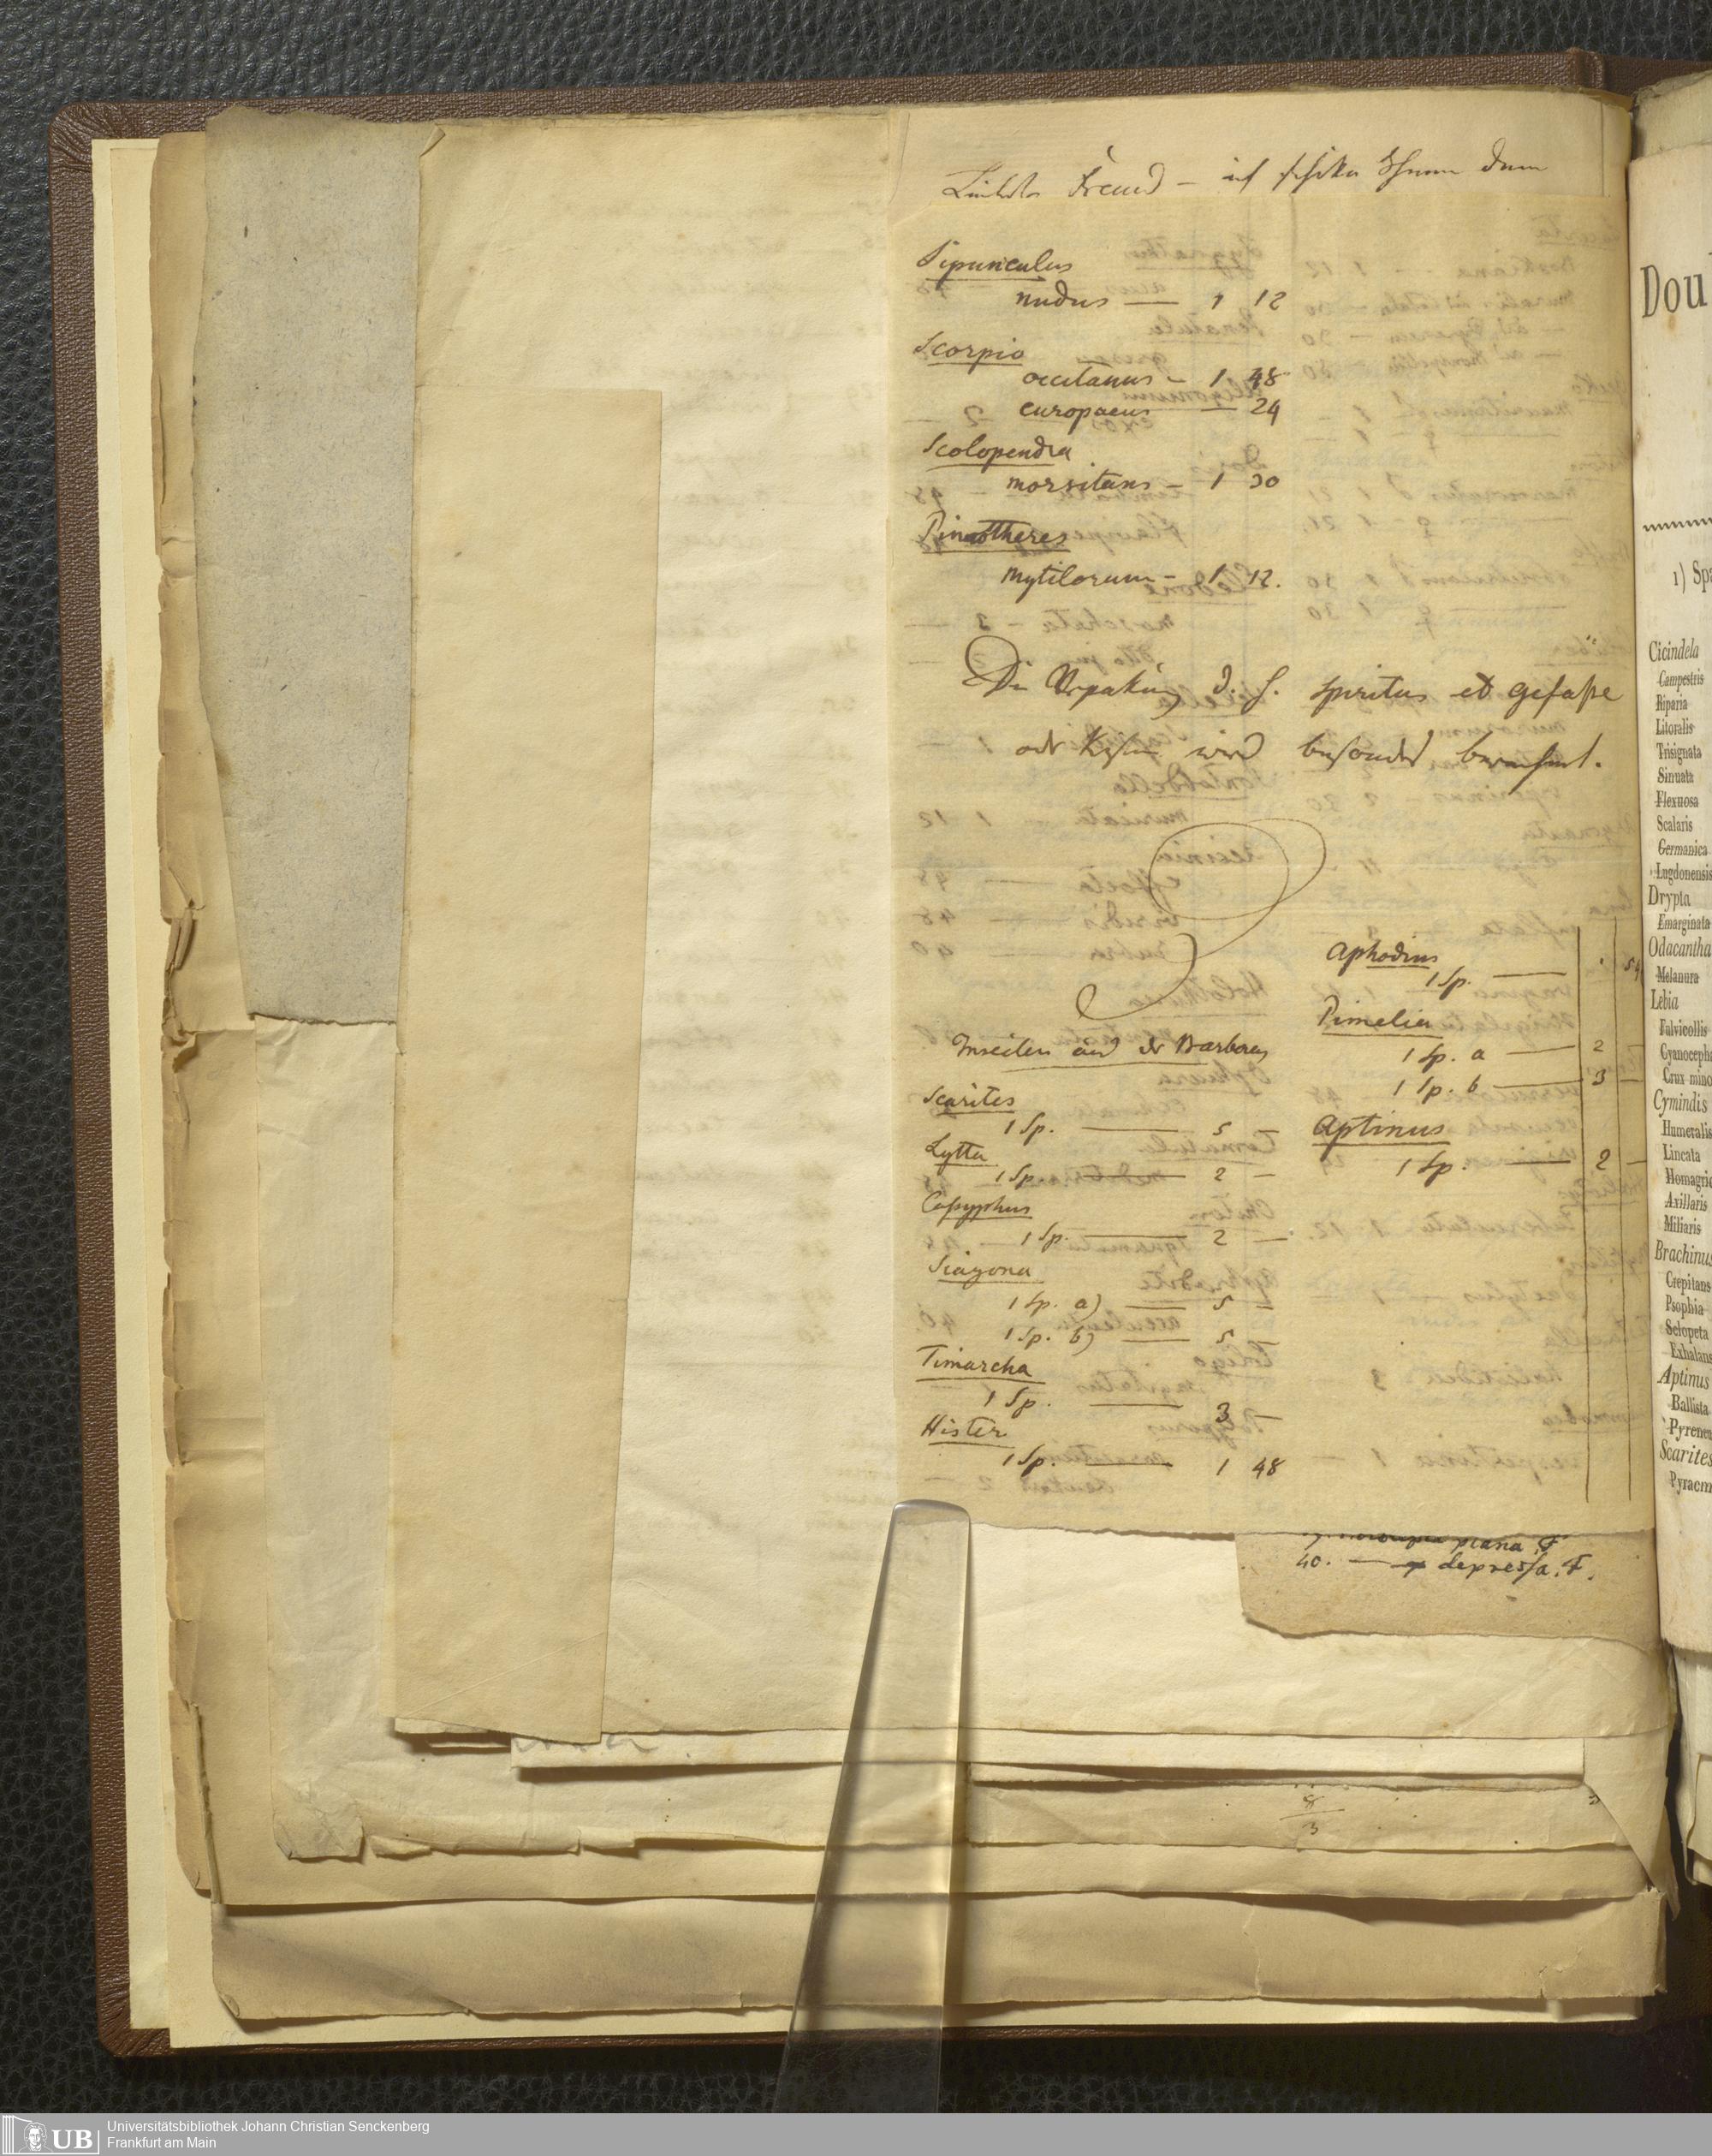 Liebster Freund – ich schicke Ihnen denn
Sipunculus
nudus — 1 12
Scorpio
occitanus – 1 48
europaeus — 24
Scolopendra
morsitans – 1 30
Pinnotheres
mytilorum – 1 12.
Die Verpakung d. h. Spiritus et gefäße
oder Kisten wird besonders berechnet.
Insecten aus der Barbarey
Scarites
1 Sp. — 5 —
Lytta
1 Sp. — 2 —
Cossyphus
1 Sp. — 2 —
Siagona
1 Sp. a) — 5 —
1 Sp. b) — 5 —
Timarcha
1 Sp. — 3 —
Hister
1 Sp. — 1 48
Aphodius
1 Sp. — 54
Pimelia
1 Sp. a — 2 —
1 Sp. b — 3 —
Aptinus
1 Sp. — 2 —
plana F
40. — depressa. F.
8
3
Dou
1) Spa
Cicindela
Campestris
Riparia
Litoralis
Trisignata
Sinuata
Flexuosa
Scalaris
Germanica
Lugdonensis
Drypta
Emarginata
Odacantha
Melanura
Lebia
Fulvicollis
Cyanoceph
Crux mino
Cymindis
Humeralis
Lineata
Homagric
Axillaris
Miliaris
Brachinus
Crepitans
Psophia
Sclopeta
Exhalans
Aptinus
Ballista
Pyrenea
Scarites
Pyracm
UB
Universitätsbibliothek Johann Christian Senckenberg
Frankfurt am Main